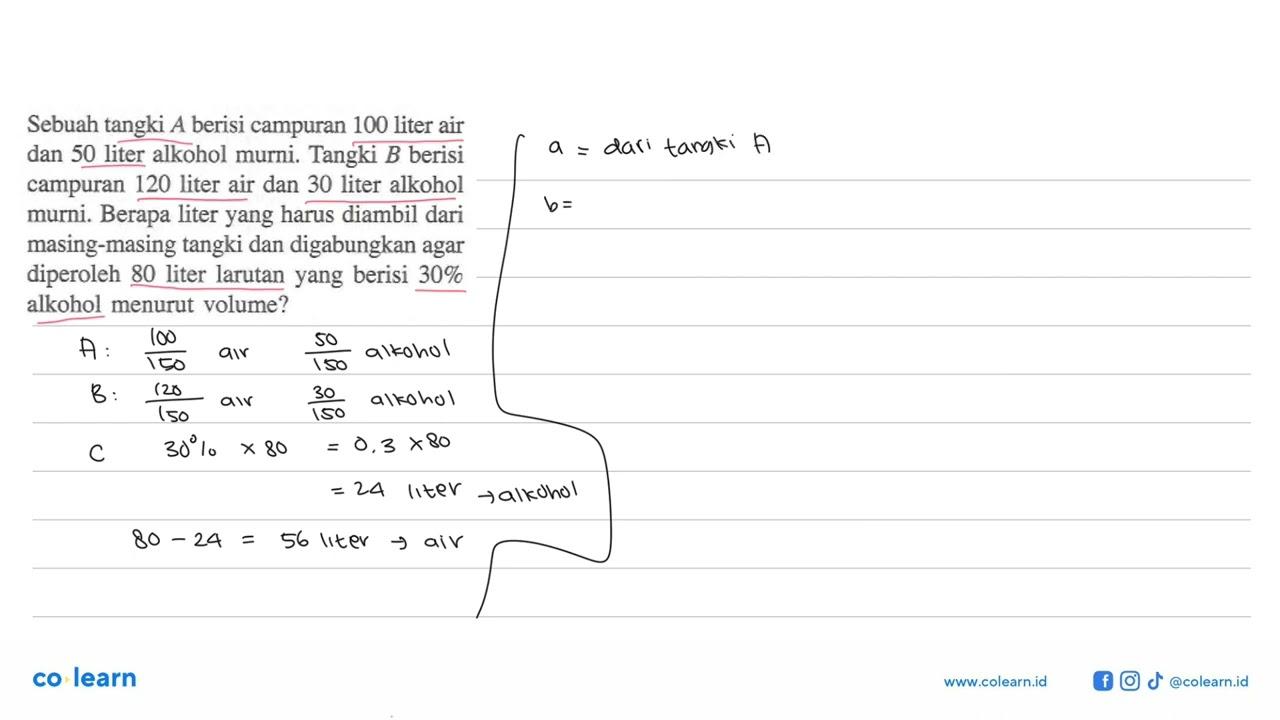 Sebuah tangki A berisi campuran 100 liter air
dan 50 liter alkohol murni. Tangki B berisi
campuran 120 liter air dan 30 liter alkohol
murni. Berapa liter yang harus diambil dari
masing-masing tangki dan digabungkan agar
diperoleh 80 liter larutan yang berisi 30%
alkohol menurut volume?
A: 100/150 air 50/150 alkohol
B: 120/150 air 30/150 alkohol
C 30% × 80 = 0.3 × 80
= 24 liter → alkohol
80 - 24 = 56 liter → air
a = dari tangki A
b =
co learn
www.colearn.id
@colearn.id